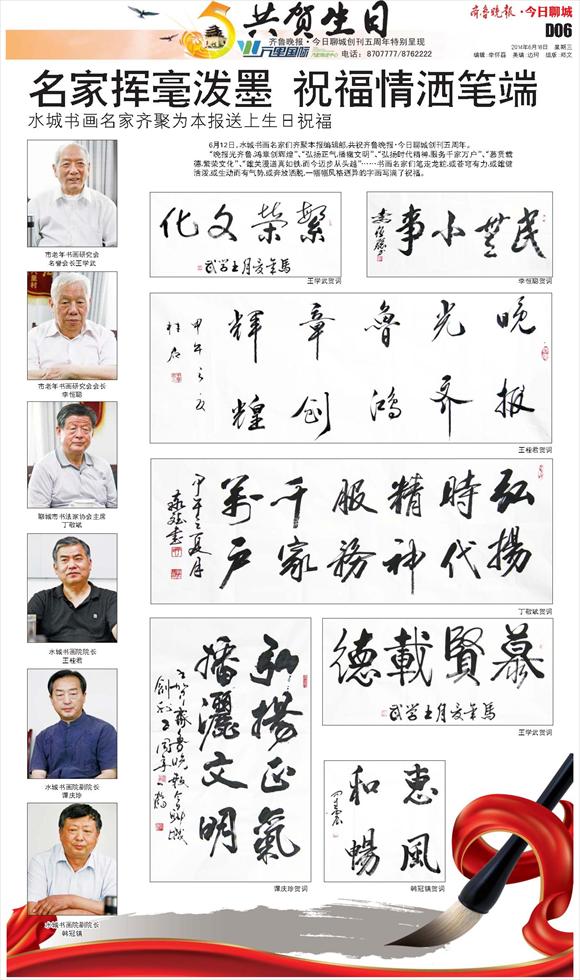 共贺生日
齐鲁晚报·今日聊城创刊五周年特别呈现
万里国际 电话：8707777/8762222
齐鲁晚报·今日聊城
D06
2014年6月18日 星期三
编辑：李怀磊 美编：边珂 组版：郑文
名家挥毫泼墨 祝福情洒笔端
水城书画名家齐聚为本报送上生日祝福
6月12日，水城书画名家们齐聚本报编辑部，共祝齐鲁晚报·今日聊城创刊五周年。
“晚报光齐鲁，鸿章创辉煌”、“弘扬正气，播洒文明”、“弘扬时代精神，服务千家万户”、“慕贤载
德，繁荣文化”、“雄关漫道真如铁，而今迈步从头越”……书画名家们笔走龙蛇，或苍穹有力，或雄健
洒泼，或生动而有气势，或奔放洒脱，一幅幅风格迥异的字画写满了祝福。
市老年书画研究会
名誉会长王学武
市老年书画研究会会长
李恒聪
聊城市书法家协会主席
丁敬斌
水城书画院院长
王桂君
水城书画院副院长
谭庆珍
水城书画院副院长
韩冠镇
繁荣文化
马年夏月王学武
王学武贺词
民无小事
李恒聪贺词
晚报
光齐
鲁鸿
章创
辉煌
甲午之夏
桂君
王桂君贺词
弘扬
时代
精神
服务
千家
万户
甲午之夏月
丁敬斌贺词
弘扬正气
播洒文明
谭庆珍贺词
慕贤载德
马年夏月王学武
王学武贺词
惠风
和畅
韩冠镇贺词